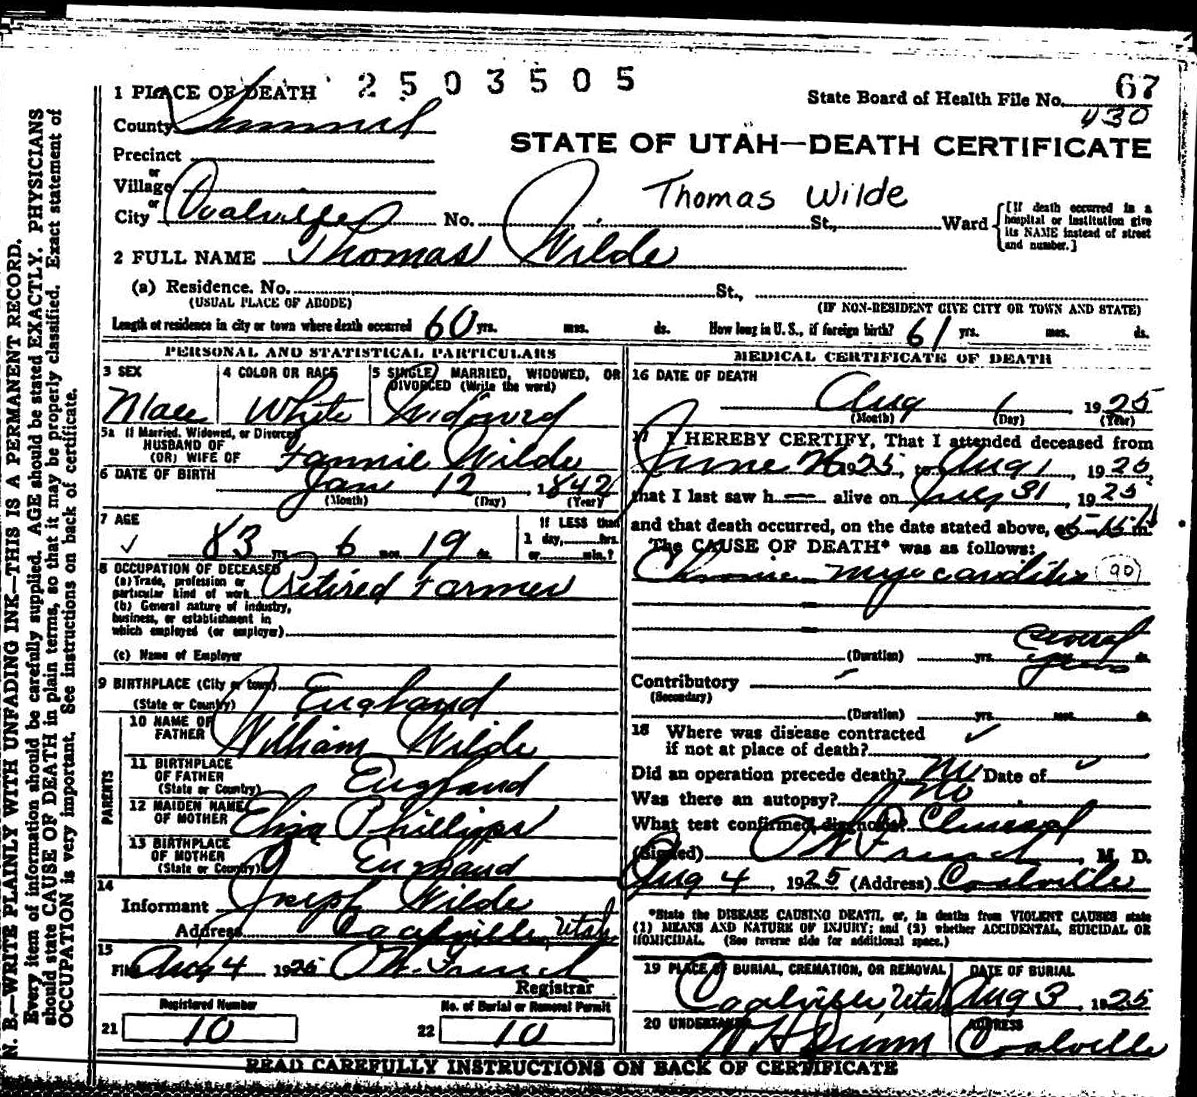 2503505
67
1 PLACE OF DEATH
State Board of Health File No. 430
County Summit
STATE OF UTAH—DEATH CERTIFICATE
Precinct
or
Village
Thomas Wilde
or
City Coalville No. St., Ward
[If death occurred in a hospital or institution give its NAME instead of street and number.]
2 FULL NAME Thomas Wilde
(a) Residence. No. St.,
(USUAL PLACE OF ABODE) (IF NON-RESIDENT GIVE CITY OR TOWN AND STATE)
Length of residence in city or town where death occurred 60 yrs. mos. ds. How long in U. S., if foreign birth? 61 yrs. mos. ds.
PERSONAL AND STATISTICAL PARTICULARS
3 SEX 4 COLOR OR RACE 5 SINGLE, MARRIED, WIDOWED, OR DIVORCED (Write the word)
Male White Widowed
5a If Married, Widowed, or Divorced
HUSBAND OF
(OR) WIFE OF Fannie Wilde
6 DATE OF BIRTH Jan 12 1842
(Month) (Day) (Year)
7 AGE If LESS than
✓ 83 yrs. 6 mos. 19 ds. 1 day, hrs.
or min.?
8 OCCUPATION OF DECEASED
(a) Trade, profession or
particular kind of work Retired Farmer
(b) General nature of industry,
business, or establishment in
which employed (or employer)
(c) Name of Employer
9 BIRTHPLACE (City or town)
(State or Country) England
PARENTS
10 NAME OF
FATHER William Wilde
11 BIRTHPLACE
OF FATHER
(State or Country) England
12 MAIDEN NAME
OF MOTHER Eliza Phillips
13 BIRTHPLACE
OF MOTHER
(State or Country) England
14
Informant Joseph Wilde
Address Coalville, Utah
15
Filed Aug 4 1925
Registrar
Registered Number No. of Burial or Removal Permit
21 10 22 10
MEDICAL CERTIFICATE OF DEATH
16 DATE OF DEATH
Aug 1 1925
(Month) (Day) (Year)
17 I HEREBY CERTIFY, That I attended deceased from
June 26 1925, to Aug 1, 1925
that I last saw h alive on July 31 1925
and that death occurred, on the date stated above, at m.
The CAUSE OF DEATH* was as follows:
Chronic myocarditis 90
several
(Duration) yrs. years ds.
Contributory
(Secondary)
(Duration) yrs. mos. ds.
18 Where was disease contracted ✓
if not at place of death?
Did an operation precede death? no Date of ✓
Was there an autopsy? No
What test confirmed diagnosis? Clinical
(Signed) , M. D.
Aug 4, 1925 (Address) Coalville
*State the DISEASE CAUSING DEATH, or, in deaths from VIOLENT CAUSES state
(1) MEANS AND NATURE OF INJURY; and (2) whether ACCIDENTAL, SUICIDAL OR
HOMICIDAL. (See reverse side for additional space.)
19 PLACE OF BURIAL, CREMATION, OR REMOVAL DATE OF BURIAL
Coalville, Utah Aug 3, 1925
20 UNDERTAKER ADDRESS
W H Dunn Coalville
READ CAREFULLY INSTRUCTIONS ON BACK OF CERTIFICATE
N. B.—WRITE PLAINLY WITH UNFADING INK—THIS IS A PERMANENT RECORD.
Every item of information should be carefully supplied. AGE should be stated EXACTLY. PHYSICIANS
should state CAUSE OF DEATH in plain terms, so that it may be properly classified. Exact statement of
OCCUPATION is very important. See instructions on back of certificate.